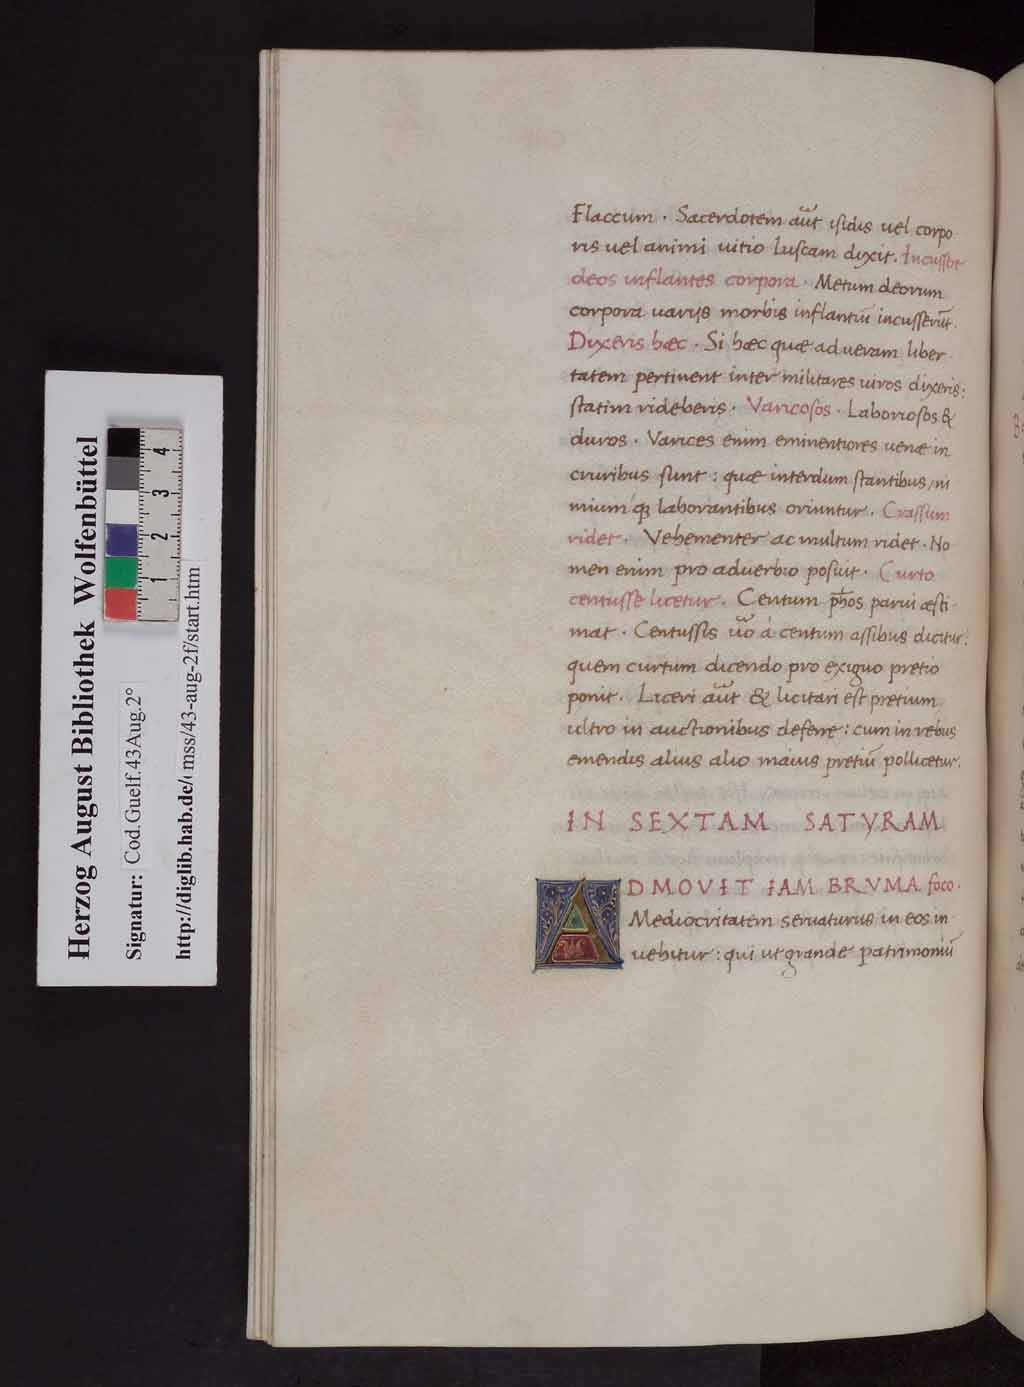 Herzog August Bibliothek Wolfenbüttel
Signatur: Cod.Guelf.43Aug.2°
http://diglib.hab.de/mss/43-aug-2f/start.htm
1 2 3 4
Flaccum . Sacerdotem aūt isidis vel corpo
ris vel animi vitio luscam dixit. Incussere
deos inflantes corpora . Metum deorum
corpora varijs morbis inflantiū incusserūt.
Dixeris hæc . Si hæc quæ ad veram liber
tatem pertinent inter militares viros dixeris:
statim rideberis . Varicosos . Laboriosos &
duros . Varices enim eminentiores venæ in
cruribus sunt : quæ interdum stantibus, ni
mium q; laborantibus oriuntur . Crassum
ridet . Vehementer ac multum ridet . No
men enim pro adverbio posuit . Curto
centusse licetur . Centum ph̄os parvi æsti
mat . Centussis ūo á centum assibus dicitur:
quem curtum dicendo pro exiguo pretio
ponit . Liceri aūt & licitari est pretium
ultro in auctionibus deferre : cum in rebus
emendis alius alio maius pretiū pollicetur.
IN SEXTAM SATYRAM
ADMOVIT IAM BRVMA foco .
Mediocritatem servaturus in eos in
vehitur : qui ut grande patrimoniū